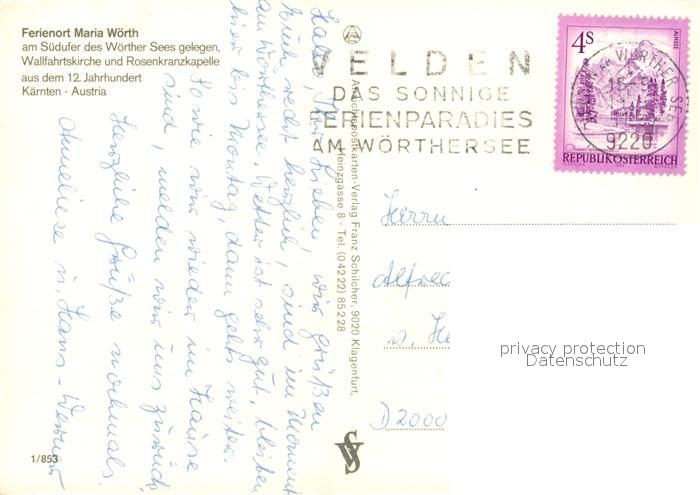 Ferienort Maria Wörth
am Südufer des Wörther Sees gelegen,
Wallfahrtskirche und Rosenkranzkapelle
aus dem 12. Jahrhundert
Kärnten · Austria
Hallo, Ihr Lieben, wir grüßen
Euch recht herzlich, sind im Moment
am Wörthersee, Wetter ist sehr gut, bleiben
hier bis Montag, dann gehts weiter.
So wie wir wieder im Hause
sind, melden wir uns zurück
Herzliche Grüße nochmals
Anneliese u. Hans-Werner
1/853
Ansichtspostkarten-Verlag Franz Schilcher, 9020 Klagenfurt,
Heinzgasse 8 - Tel. (04222) 85228
VELDEN
DAS SONNIGE
FERIENPARADIES
AM WÖRTHERSEE
4S
ALMSEE
VELDEN AM WÖRTHER SEE
9220
REPUBLIK ÖSTERREICH
Herrn
Alfred
u. He
D 2000
privacy protection
Datenschutz